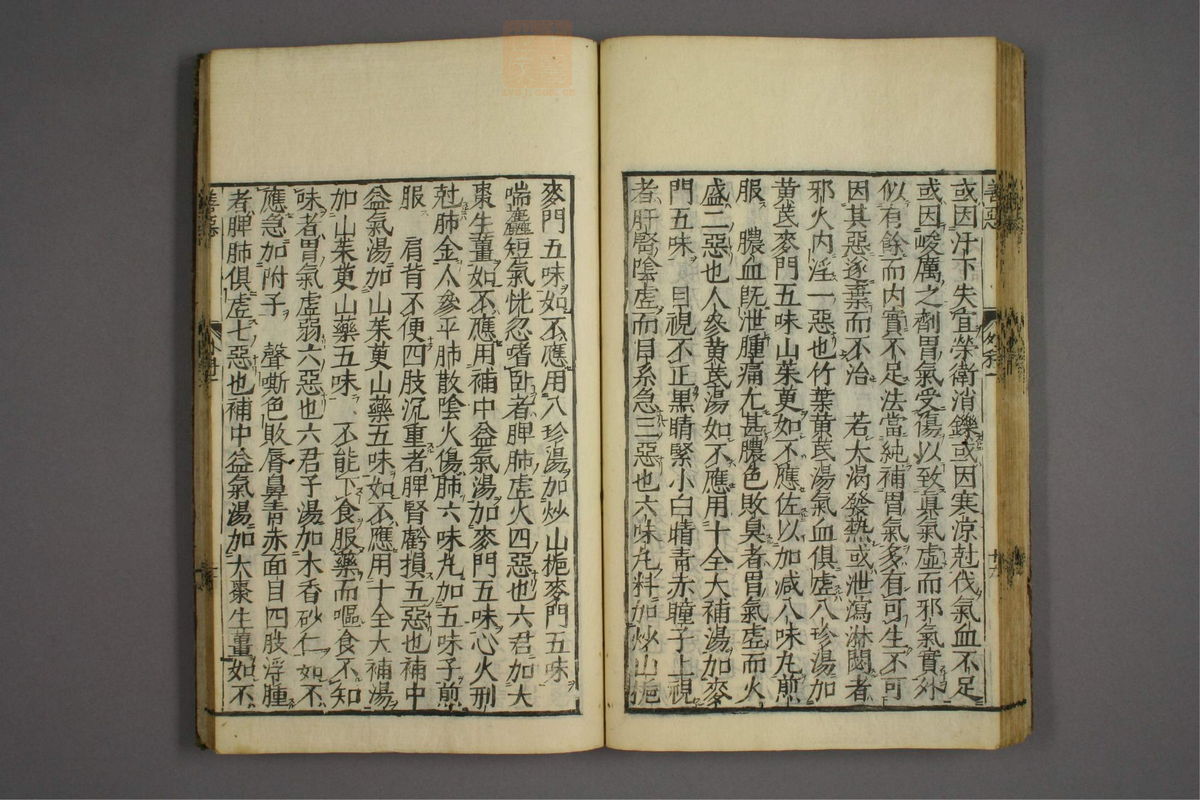 或因汗下失宜榮衛消鑠或因寒涼尅伐氣血不足
或因峻厲之劑胃氣受傷以致眞氣虛而邪氣實外
似有餘而內實不足法當純補胃氣多有可生不可
因其惡遂棄而不治　若大渴發熱或泄瀉淋閟者
邪火內淫一惡也竹葉黃芪湯氣血俱虛八珍湯加
黃芪麥門五味山茱萸如不應佐以加減八味丸煎
服　膿血既泄腫痛尤甚膿色敗臭者胃氣虛而火
盛二惡也人參黃芪湯如不應用十全大補湯加麥
門五味　目視不正黑睛緊小白睛青赤瞳子上視
者肝腎陰虛而目系急三惡也六味丸料加炒山梔
麥門五味如不應用八珍湯加炒山梔麥門五味
喘麤短氣恍忽嗜卧者脾肺虛火四惡也六君加大
棗生薑如不應用補中益氣湯加麥門五味心火刑
尅肺金人參平肺散陰火傷肺六味丸加五味子煎
服　肩背不便四肢沉重者脾腎虧損五惡也補中
益氣湯加山茱萸山藥五味如不應用十全大補湯
加山茱萸山藥五味　不能下食服藥而嘔食不知
味者胃氣虛弱六惡也六君子湯加木香砂仁如不
應急加附子　聲嘶色敗唇鼻青赤面目四肢浮腫
者脾肺俱虛七惡也補中益氣湯加大棗生薑如不